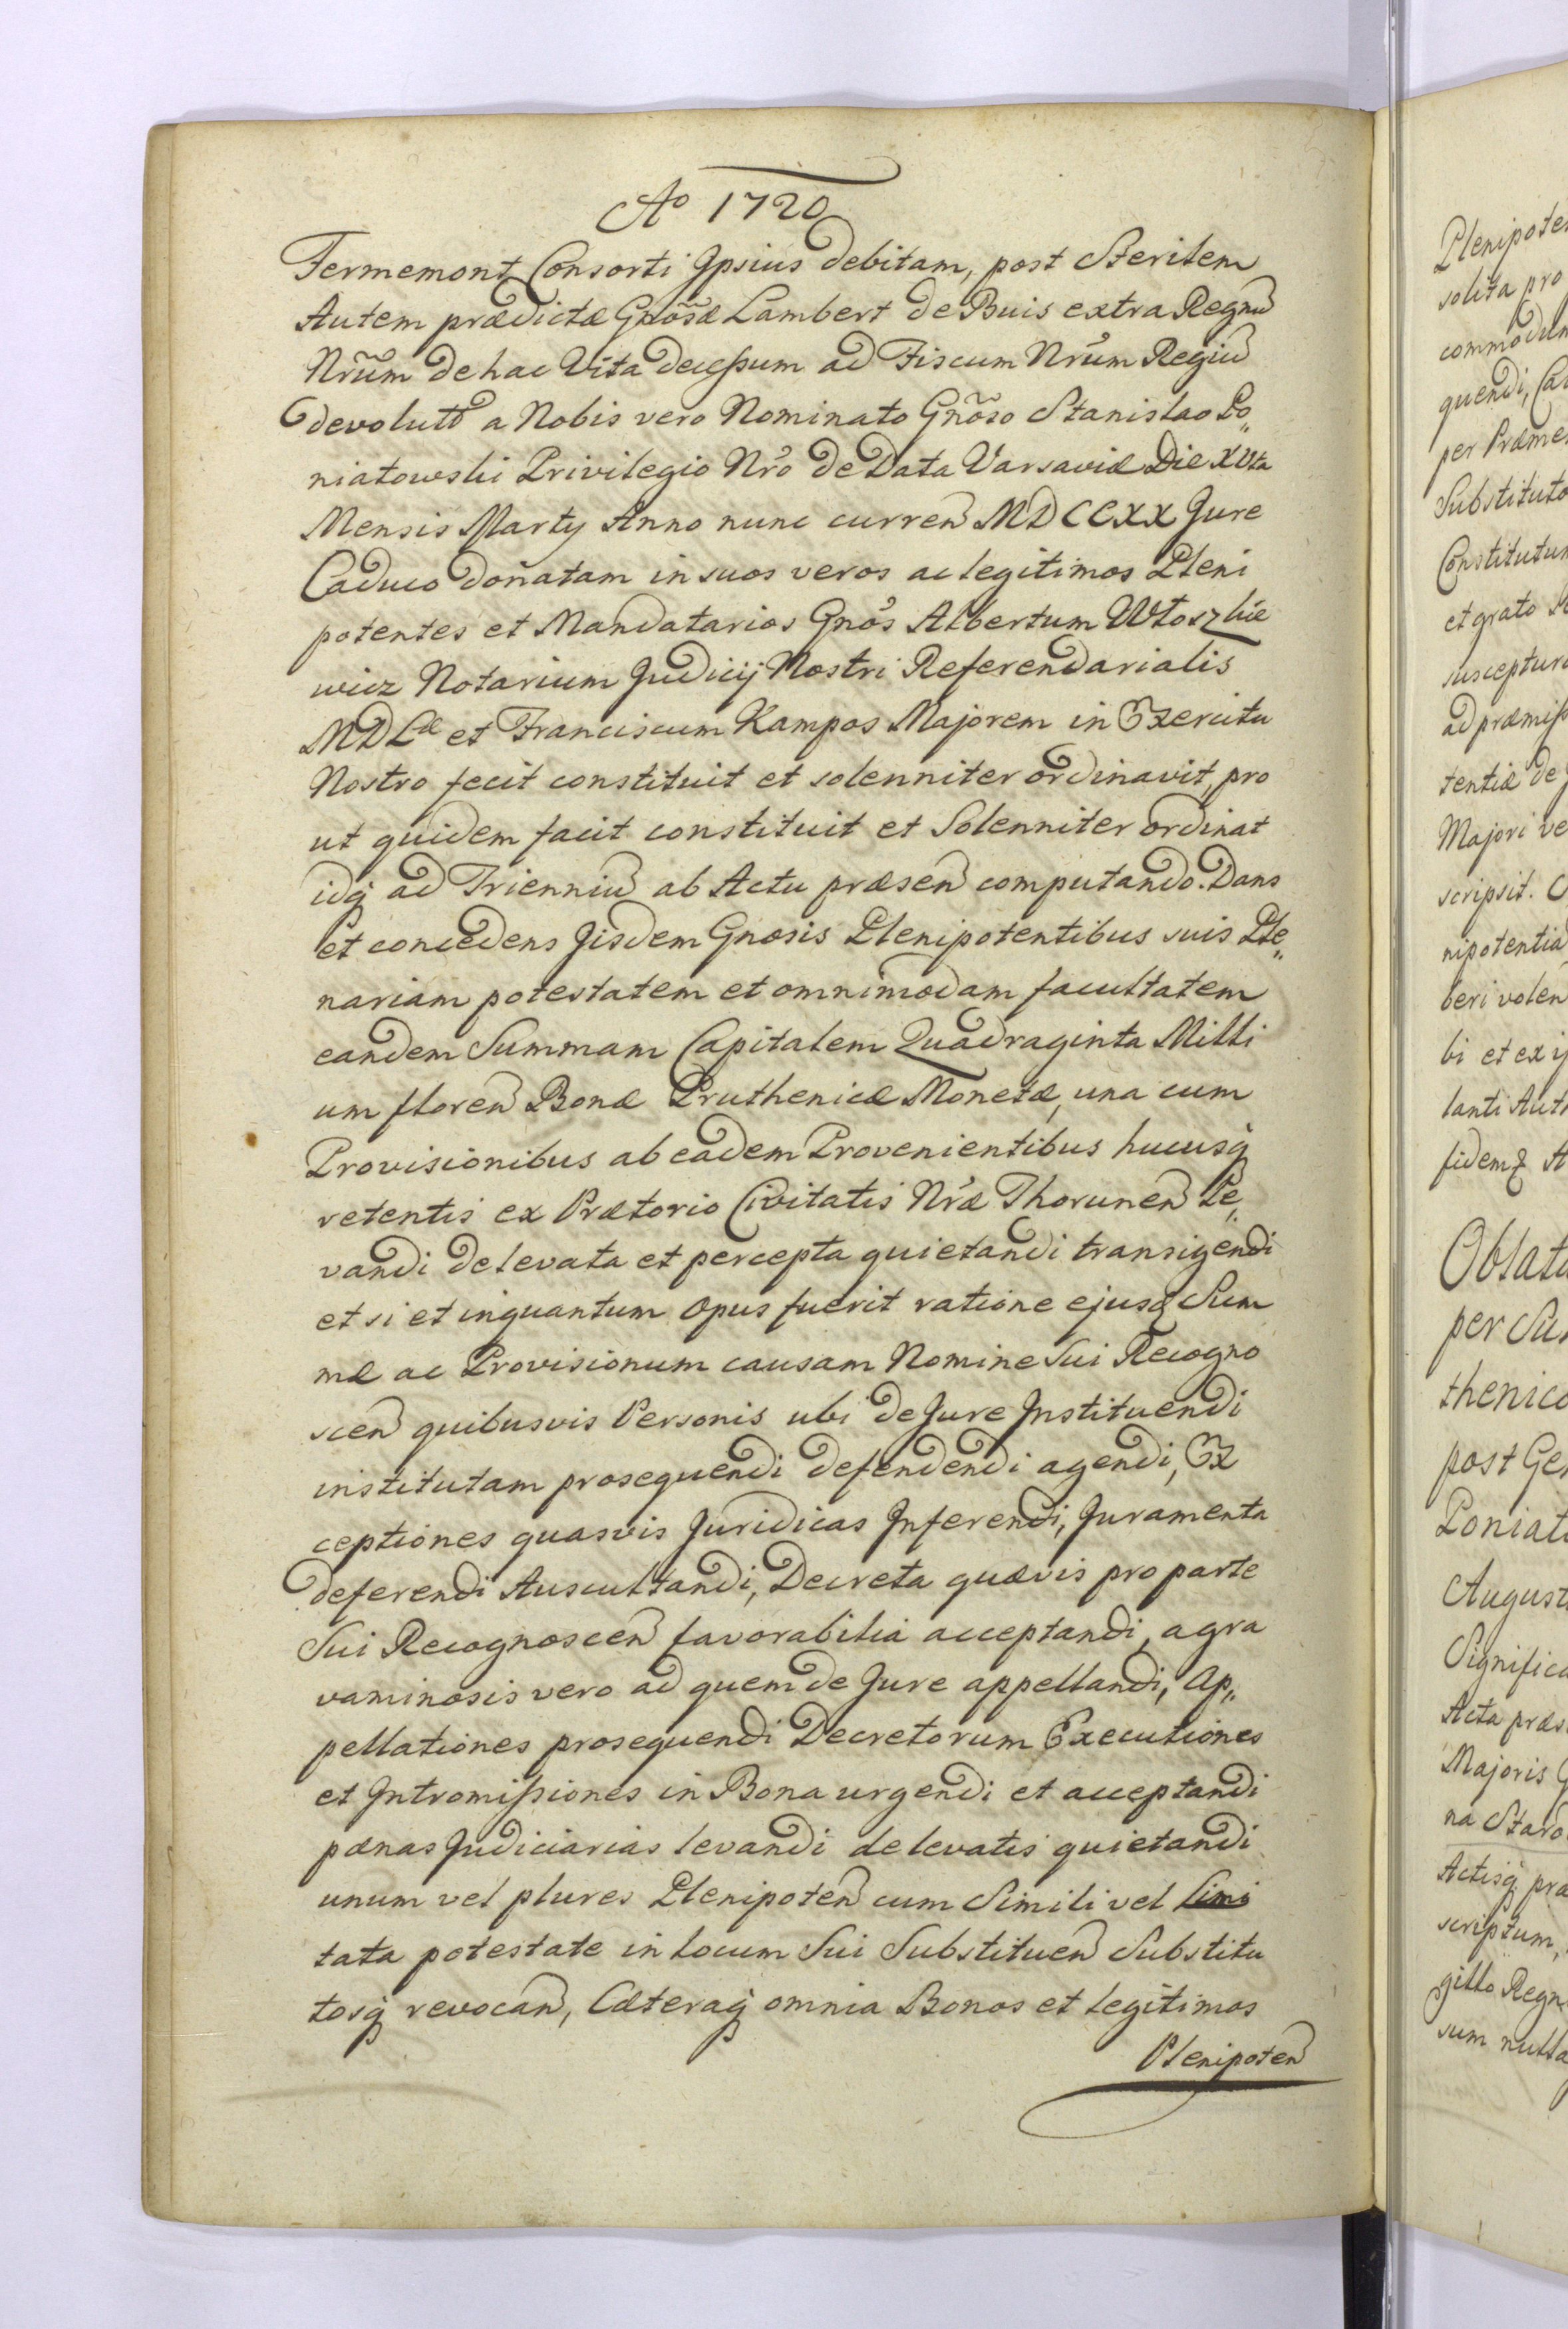 Ao 1720
Fermemont Consorti Ipsius debitam, post Sterilem
Autem prædictæ Gnõsæ Lambert de Buis extra Regnū
Nrũm de hac Vita decessum ad Fiscum Nrũm Regiū
devolutā a Nobis vero Nominato Gnõso Stanislao Po„
niatowski Privilegio Nrõ de Data Varsaviæ Die XVta
Mensis Marty Anno nunc curren̄ MDCCXX Jure
Caduco doñatam in suos veros ac legitimos Pleni
potentes et Mandatarios Gnõs Albertum Włoszkie
wicz Notarium Judicij Nostri Referendarialis
MDLæ et Franciscum Kampos Majorem in Exercitu
Nostro fecit constituit et solenniter ordinavit, pro
ut quidem facit constituit et Solenniter ordinat
idq̃ ad Trienniū ab Actu præsen̄ computando. Dans
et concedens Jisdem Gnosis Plenipotentibus suis Ple„
nariam potestatem et omnimodam facultatem
eandem Summam Capitalem Quadraginta Milli
um floren̄ Bonæ Pruthenicæ Monetæ, una cum
Provisionibus ab eadem Provenientibus hucusq̃
retentis ex Prætorio Civitatis Nræ Thorunen̄ Le„
vandi de levata et percepta quietandi transigendi
et si et inquantum opus fuerit ratione ejusd Sum
mæ ac Provisionum causam Nomine Sui Recogno
scen̄ quibusvis Personis ubi de Jure Instituendi
institutam prosequendi defendendi agendi, Ex
ceptiones quasvis Juridicas Inferendi, Juramenta
deferendi Auscultandi, Decreta quævis pro parte
Sui Recognoscen̄ favorabilia acceptandi, agra
vaminosis vero ad quem de Jure appellandi, Ap„
pellationes prosequendi Decretorum Executiones
et Intromissiones in Bona urgendi et acceptandi
pænas Judiciarias levandi de levatis quietandi
unum vel plures Plenipoten̄ cum Simili vel Limi
tata potestate in locum Sui Substituen̄ Substitu
tosq̃ revocan̄, Cæteraq̃ omnia Bonos et legitimos
Plenipoten̄
Plenipoten
solita pro
commodum
quendi, Ca
per Præme
Substituto
Constitutum
et grato
susceptur
ad præmiss
tentiæ de
Majori ve
scripsit.
nipotentia
beri volen
bi et ex
lanti Aut
fidemq̃
Oblata
per Su
thenica
post Ge
Poniat
August
Signific
Acta præs
Majoris
na Staro
Actisq̃ præ
scriptum,
gillo Regn
sum nulla